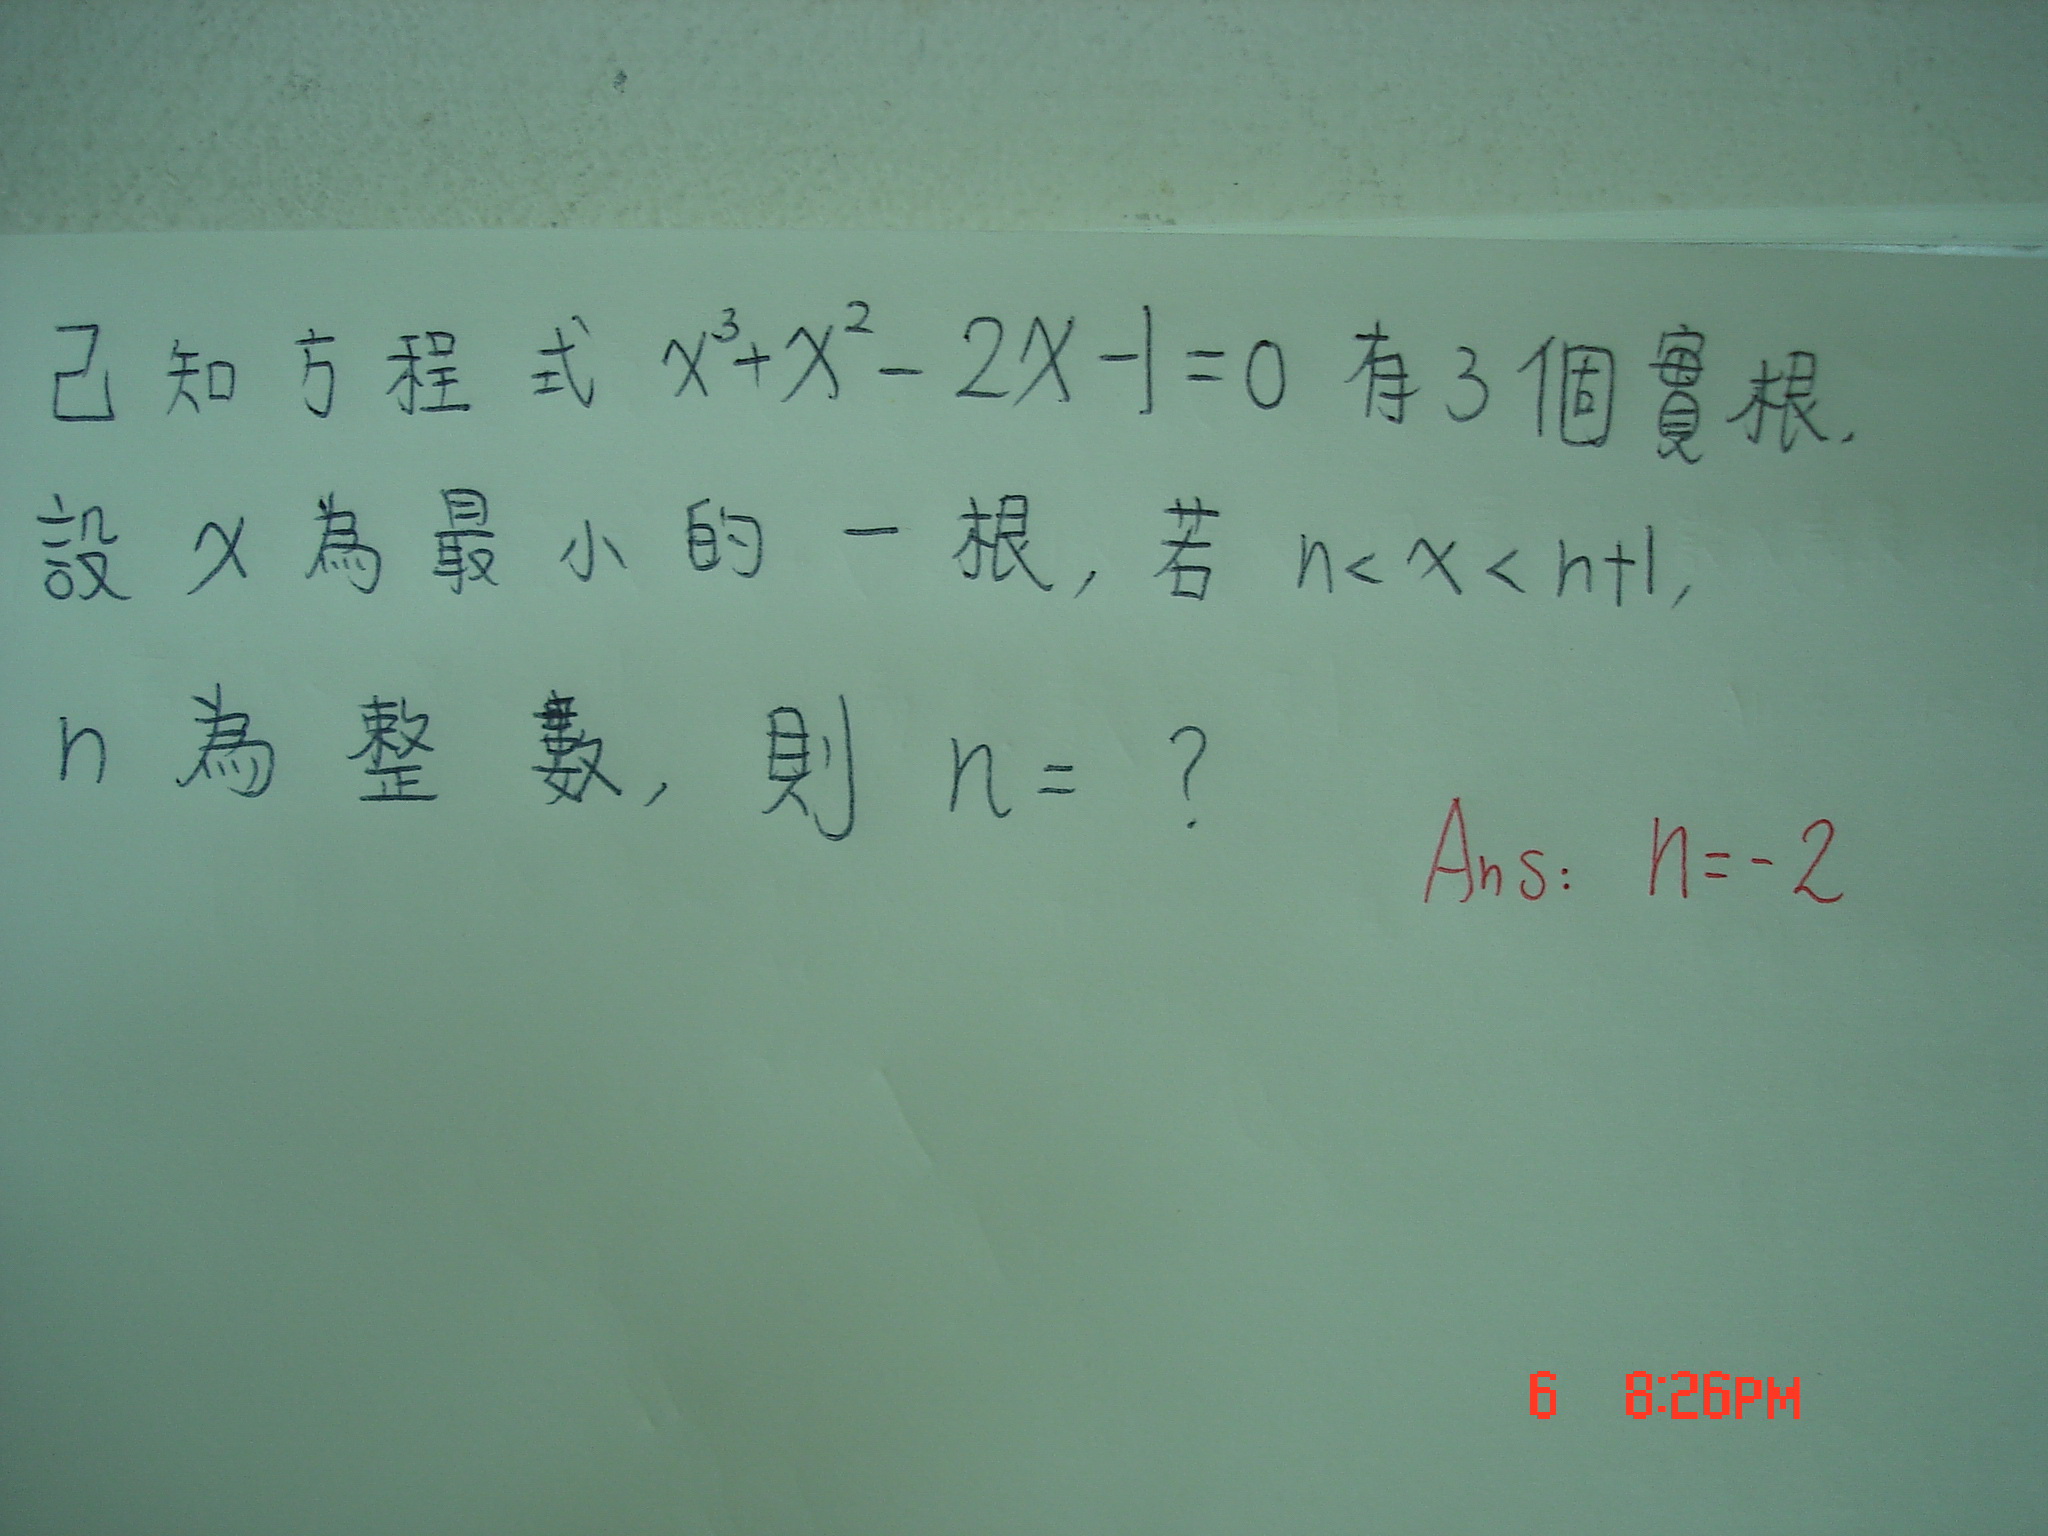 已知方程式 x³+x²-2x-1=0 有3個實根.
設 x 為最小的一根, 若 n<x<n+1,
n 為整數, 則 n= ?
Ans: n=-2
6 8:26PM